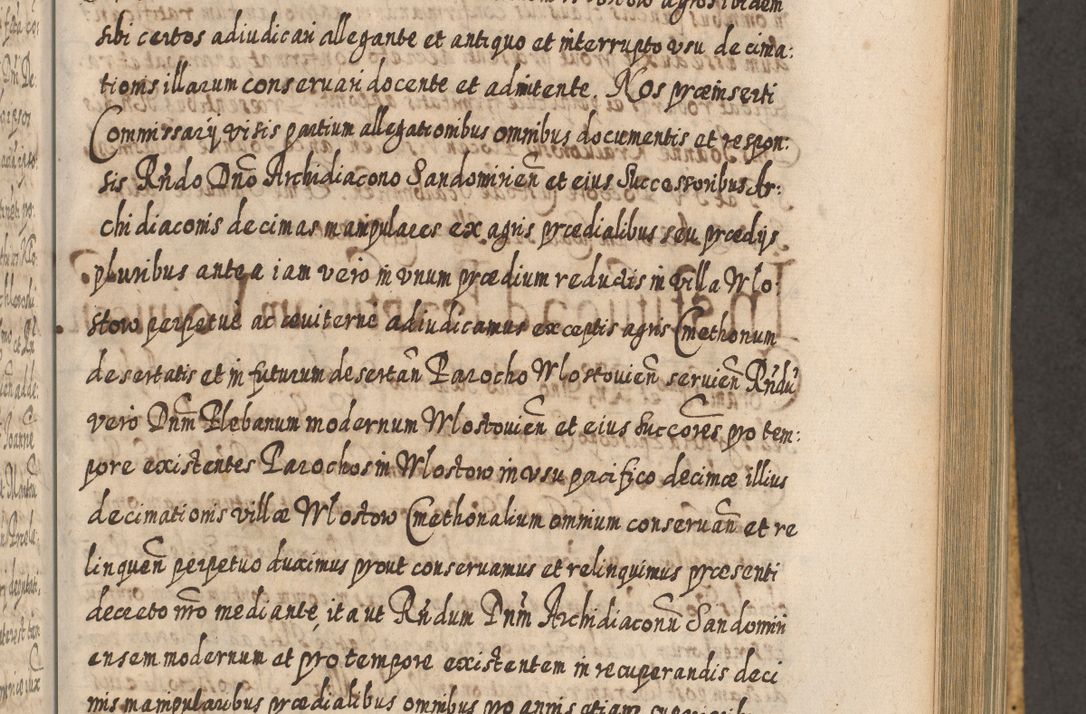 sibi certos adiudicari allegante et antiquo et interrupto vsu decima:
tionis illarum conservari docente et admitente. Nos præinserti
Commissarij visis partium allegationibus omnibus documentis et respon:
sis Rńdo Dno Archidiacono Sandomirien et eius Successoribus Ar:
chidiaconis decimas manipulares ex agris prædialibus seu prædijs
pluribus antea iam vero in vnum prædium reductis in villa Wlo:
stow perpetuè ac œuiternè adiudicamus exceptis agris Cmethonum
desertatis et in futurum desertan Parocho Wlostouien servien Rńdu
vero Dnm Plebanum modernum Wlostouien et eius Succores pro tem:
pore existentes Parochos in Wlostow in vsu pacifico decimæ illius
decimationis villæ Wlostow Cmethonalium omnium conservan et re
linquen perpetuo duximus prout conservamus et relinquimus præsenti
decreto nro mediante, ita vt Rńdum Dnm Archidiaconu Sandomiri
ensem modernum et pro tempore existentem in recuperandis deci
mis manipularibus prædialibus omnibus pro annis etiam